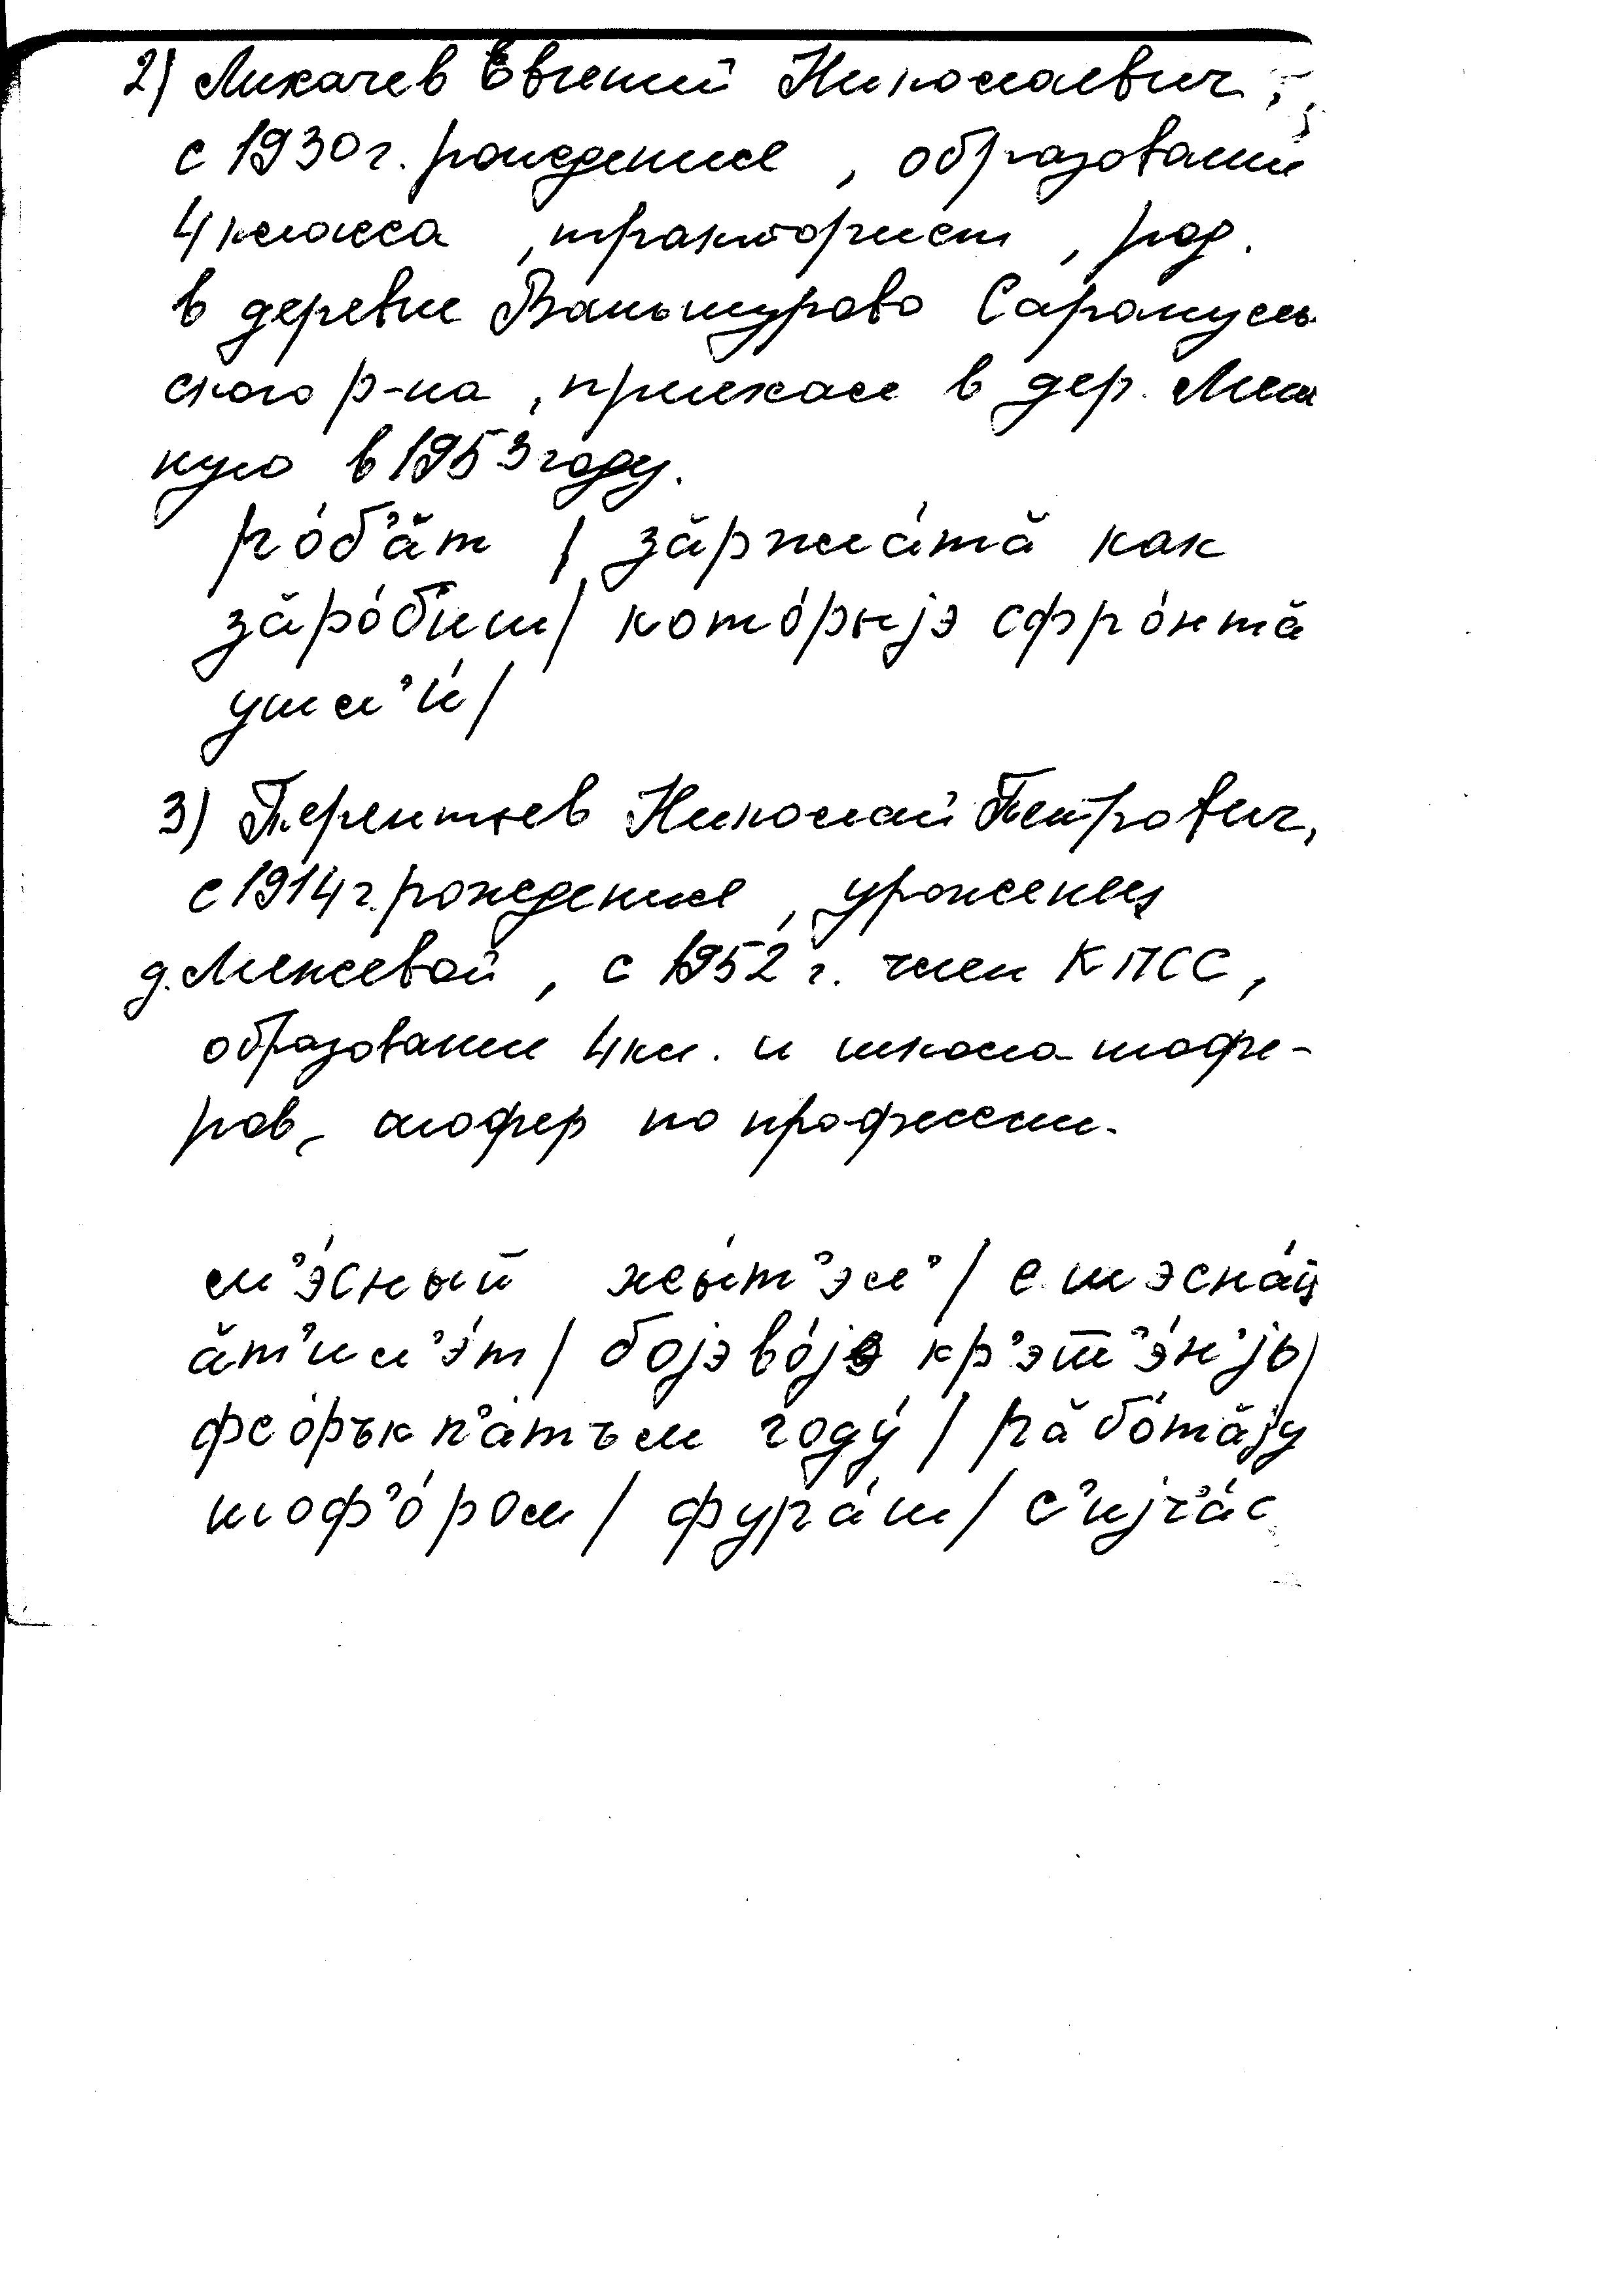 2) Лихачев Евгений Николаевич,
с 1930 г. рождения, образование
4 класса, тракторист, род.
в деревне Ваньтурово Сарапуль
ского р-на, приехал в дер.
в 1953 году.
ро́б’ӑт / зӑрпла́тӑ как
зӑро́б’иш / кото́рыjэ сфро́нтӑ
ушл’и́ /
3) Терентьев Николай Петрович,
с 1914 г. рождения, уроженец
д. Межевой, с 1952 г. член КПСС,
образование 4 кл. и школа шофе-
ров, шофер по профессии.
м’э́сный жы́т’эл’ / с шэсна́ц
ӑт’ил’э́т / боjэво́jэ кр’эш’э́н’jь /
фсо́рък п’а́тъм году́ / рӑбо́тӑjу
шоф’о́ром / фура́ш / с’иjч’а́с